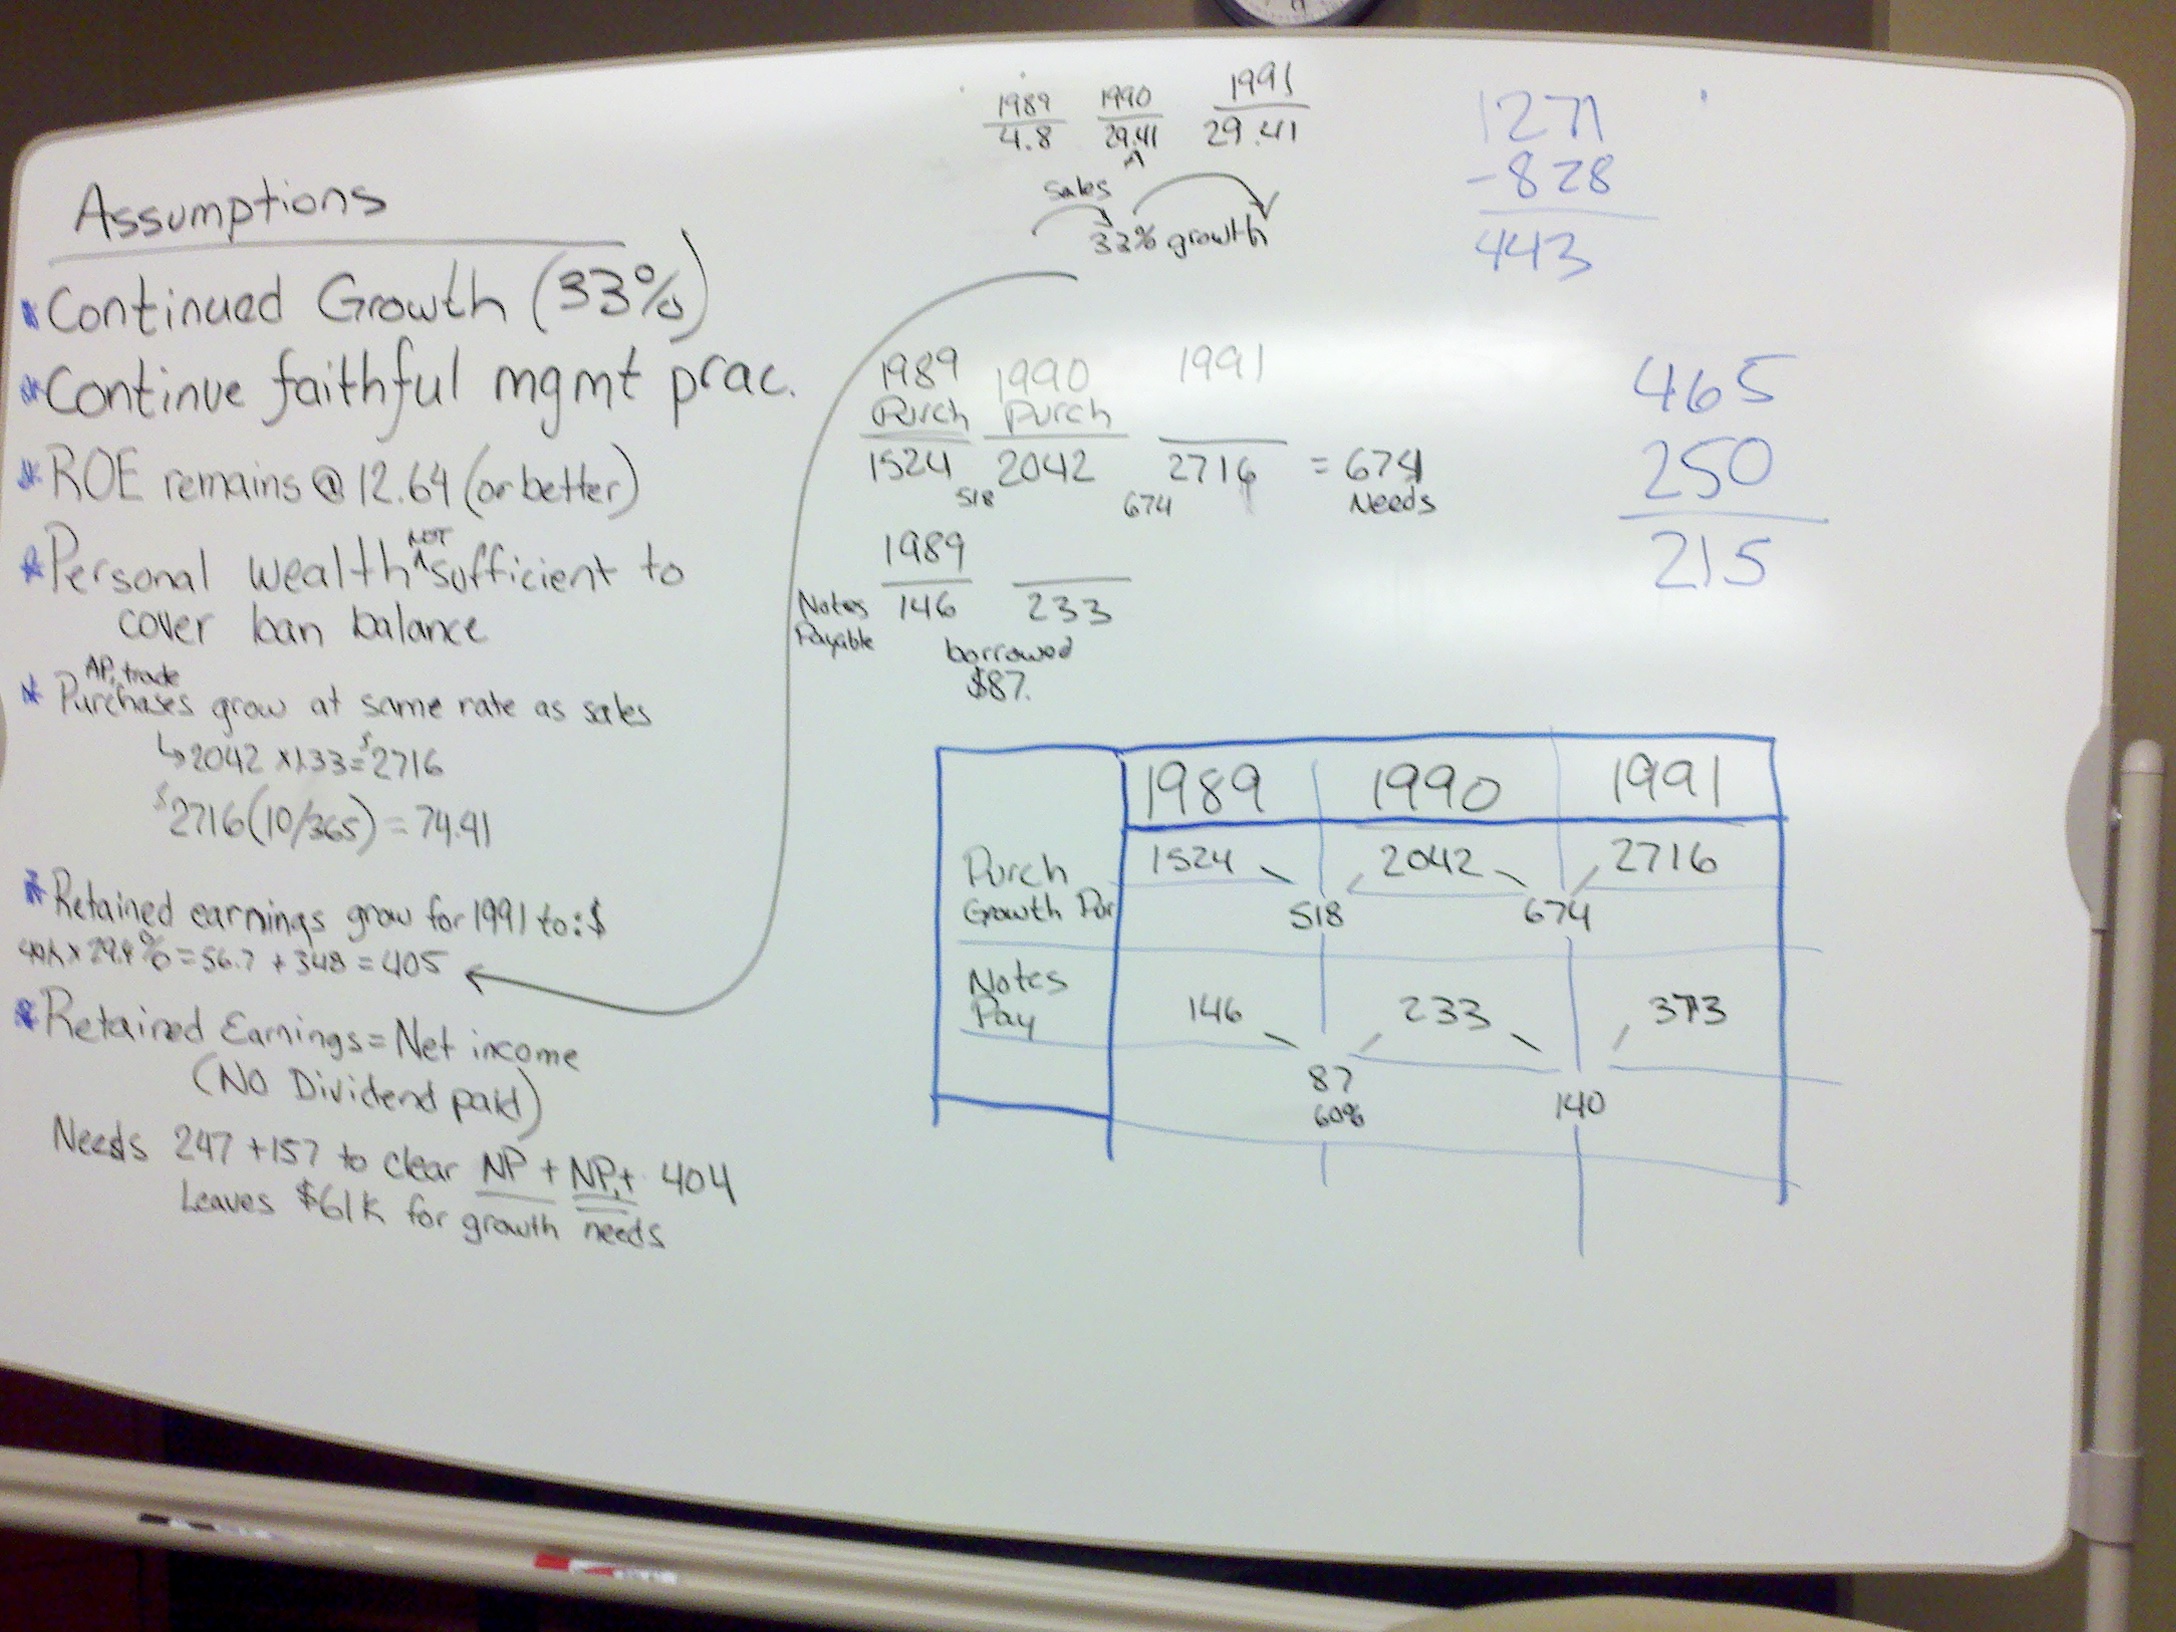 Assumptions
Continued Growth (33%)
Continue faithful mgmt prac.
ROE remains @ 12.64 (or better)
Personal wealth NOT sufficient to
cover loan balance
AP, trade
Purchases grow at same rate as sales
↳ 2042 x 1.33 = $2716
$2716 (10/365) = 74.41
Retained earnings grow for 1991 to: $
x 29.4% = 56.7 + 348 = 405
Retained Earnings = Net income
(NO Dividend paid)
Needs 247 + 157 to clear NP + NP,t 404
Leaves $61K for growth needs
1989 1990 1991
4.8 29.41 29.41
sales
33% growth
1271
-828
443
465
250
215
1989 1990 1991
Purch Purch
1524 2042 2716 = 674
518 674 Needs
1989
Notes Payable 146 233
borrowed
$87.
1989 1990 1991
Purch 1524 2042 2716
Growth Pur 518 674
Notes
Pay 146 233 373
87 140
60%